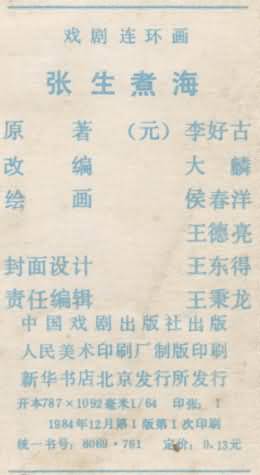 戏剧连环画
张生煮海
原著 （元）李好古
改编 大麟
绘画 侯春洋
王德亮
封面设计 王东得
责任编辑 王秉龙
中国戏剧出版社出版
人民美术印刷厂制版印刷
新华书店北京发行所发行
开本787×1092毫米1/64 印张：1
1984年12月第1版第1次印刷
统一书号：8069·761 定价：0.13元